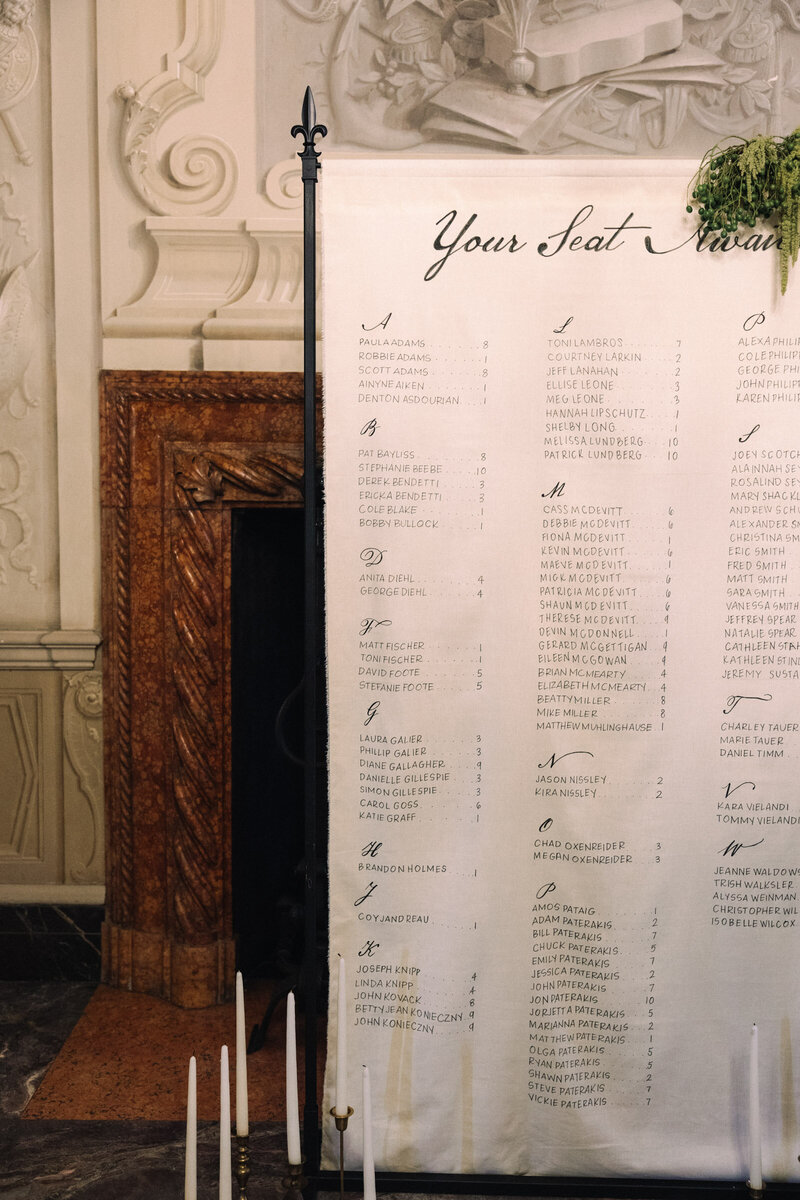 Your Seat Awai
A
PAULA ADAMS . . . . . . . 8
ROBBIE ADAMS . . . . . . 1
SCOTT ADAMS . . . . . . . 8
AINYNE AIKEN . . . . . . . 1
DENTON ASDOURIAN . . . 1
B
PAT BAYLISS . . . . . . . . 8
STEPHANIE BEEBE . . . . . 10
DEREK BENDETTI . . . . . 3
ERICKA BENDETTI . . . . . 3
COLE BLAKE . . . . . . . . 1
BOBBY BULLOCK . . . . . 1
D
ANITA DIEHL . . . . . . . . 4
GEORGE DIEHL . . . . . . . 4
F
MATT FISCHER . . . . . . . 1
TONI FISCHER . . . . . . . 1
DAVID FOOTE . . . . . . . 5
STEFANIE FOOTE . . . . . 5
G
LAURA GALIER . . . . . . . 3
PHILLIP GALIER . . . . . . 3
DIANE GALLAGHER . . . . 9
DANIELLE GILLESPIE . . . 3
SIMON GILLESPIE . . . . . 3
CAROL GOSS . . . . . . . . 6
KATIE GRAFF . . . . . . . . 1
H
BRANDON HOLMES . . . . 1
J
COY JANDREAU . . . . . . 1
K
JOSEPH KNIPP . . . . . . . 4
LINDA KNIPP . . . . . . . . 4
JOHN KOVACK . . . . . . . 8
BETTY JEAN KONIECZNY . 9
JOHN KONIECZNY . . . . . 9
L
TONI LAMBROS . . . . . . 7
COURTNEY LARKIN . . . . 2
JEFF LANAHAN . . . . . . . 2
ELLISE LEONE . . . . . . . 3
MEG LEONE . . . . . . . . 3
HANNAH LIPSCHUTZ . . . 1
SHELBY LONG . . . . . . . 1
MELISSA LUNDBERG . . . 10
PATRICK LUNDBERG . . . 10
M
CASS MCDEVITT . . . . . . 6
DEBBIE MCDEVITT . . . . 6
FIONA MCDEVITT . . . . . 1
KEVIN MCDEVITT . . . . . 6
MAEVE MCDEVITT . . . . . 1
MICK MCDEVITT . . . . . . 6
PATRICIA MCDEVITT . . . 6
SHAUN MCDEVITT . . . . . 6
THERESE MCDEVITT . . . . 9
DEVIN MCDONNELL . . . . 1
GERARD MCGETTIGAN . . 9
EILEEN MCGOWAN . . . . . 9
BRIAN MCMEARTY . . . . . 4
ELIZABETH MCMEARTY . . 4
BEATTY MILLER . . . . . . 8
MIKE MILLER . . . . . . . . 8
MATTHEW MUHLINGHAUSE . 1
N
JASON NISSLEY . . . . . . 2
KIRA NISSLEY . . . . . . . 2
O
CHAD OXENREIDER . . . . 3
MEGAN OXENREIDER . . . 3
P
AMOS PATAIG . . . . . . . 1
ADAM PATERAKIS . . . . . 2
BILL PATERAKIS . . . . . . 7
CHUCK PATERAKIS . . . . 5
EMILY PATERAKIS . . . . . 7
JESSICA PATERAKIS . . . . 2
JOHN PATERAKIS . . . . . 7
JON PATERAKIS . . . . . . 10
JORJETTA PATERAKIS . . . 5
MARIANNA PATERAKIS . . 2
MATTHEW PATERAKIS . . . 1
OLGA PATERAKIS . . . . . 5
RYAN PATERAKIS . . . . . 5
SHAWN PATERAKIS . . . . 2
STEVE PATERAKIS . . . . . 7
VICKIE PATERAKIS . . . . . 7
P
ALEXA PHILIP
COLE PHILIP
GEORGE PHI
JOHN PHILIP
KAREN PHILIP
S
JOEY SCOTCH
ALAINNAH SE
ROSALIND SEY
MARY SHACKL
ANDREW SCHU
ALEXANDER SM
CHRISTINA SM
ERIC SMITH
FRED SMITH
MATT SMITH
SARA SMITH
VANESSA SMITH
JEFFREY SPEAR
NATALIE SPEAR
CATHLEEN STAH
KATHLEEN STIND
JEREMY SUSTA
T
CHARLEY TAUER
MARIE TAUER
DANIEL TIMM
V
KARA VIELANDI
TOMMY VIELANDI
W
JEANNE WALDOWS
TRISH WALKSLER
ALYSSA WEINMAN
CHRISTOPHER WIL
ISOBELLE WILCOX